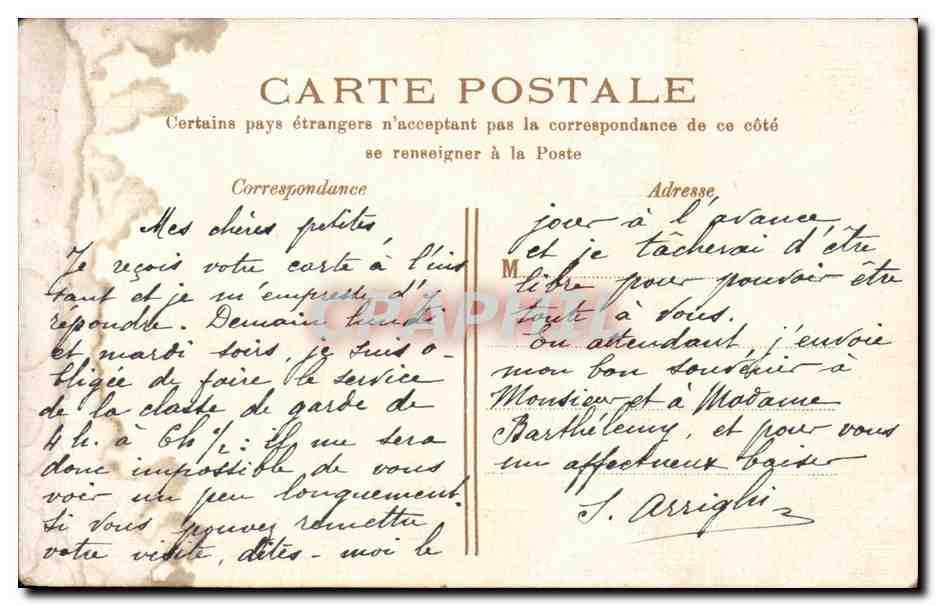 CARTE POSTALE
Certains pays étrangers n'acceptant pas la correspondance de ce côté
se renseigner à la Poste
Correspondance
Mes chères petites,
Je reçois votre carte à l'ins
tant et je m'empresse d'y
répondre. Demain lundi
et mardi soirs, je suis o-
bligée de faire le service
de la classe de garde de
4h. à 6h 1/2 : il me sera
donc impossible de vous
voir un peu longuement.
Si vous pouvez remettre
votre visite, dites-moi le
Adresse
jour à l'avance
et je tâcherai d'être
M
libre pour pouvoir être
toute à vous.
En attendant, j'envoie
mon bon souvenir à
Monsieur et à Madame
Barthélemy, et pour vous
un affectueux baiser
S. Arrighi
CPAPHIL